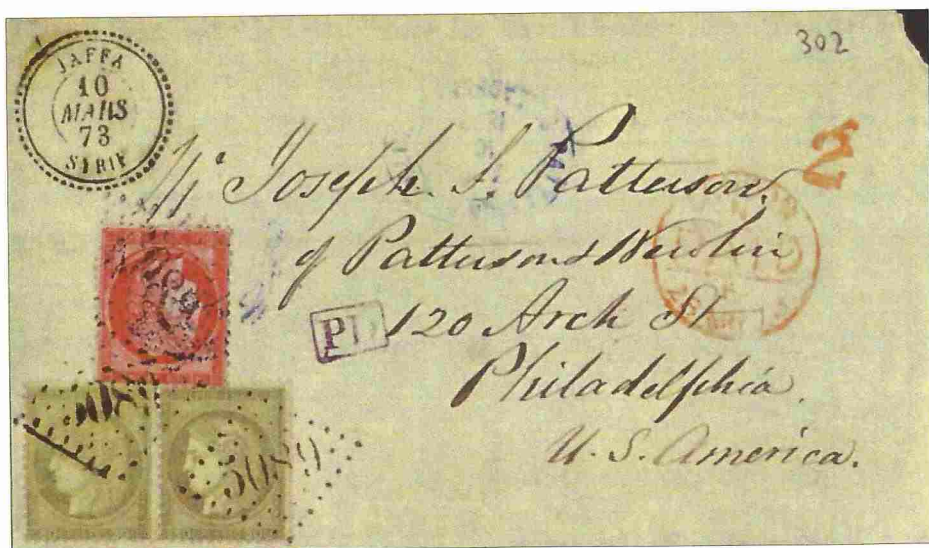 302
JAFFA
10
MARS
73
SYRIE
2
Joseph. S. Patterson.
of Patterson &
PD
120 Arch St
Philadelphia.
U. S. America.
5089
5089